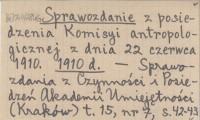 Sprawozdanie z posie-
dzenia Komisyi antropolo-
gicznej z dnia 22 czerwca
1910. 1910 d. — Sprawo-
zdania z Czynności i Posie-
dzeń Akademii Umiejętności
(Kraków) t. 15, nr 7, s. 42-43